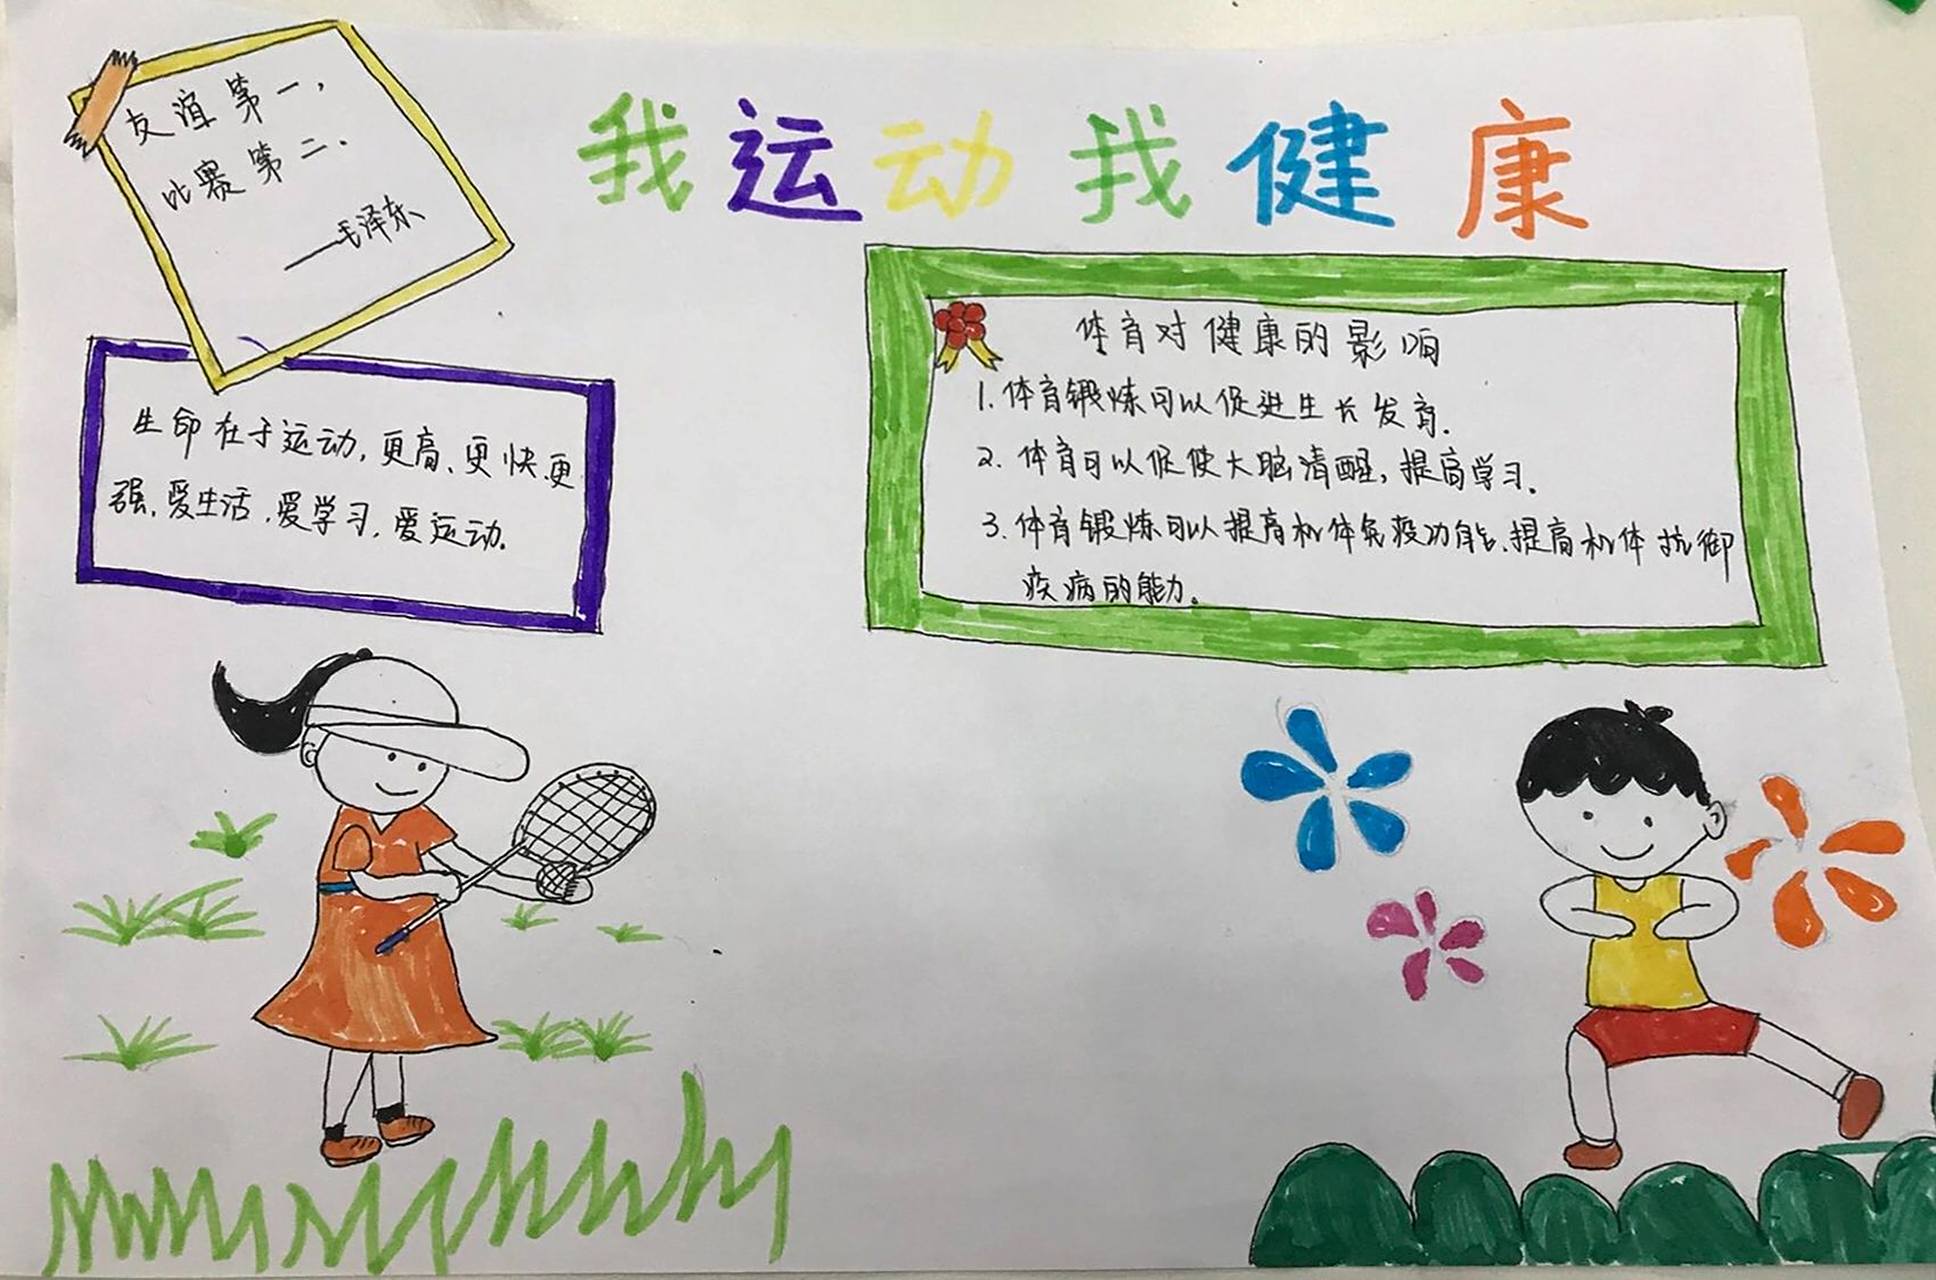 我运动我健康
友谊第一,
比赛第二.
——毛泽东
生命在于运动,更高、更快、更
强,爱生活,爱学习,爱运动.
体育对健康的影响
1.体育锻炼可以促进生长发育.
2.体育可以促使大脑清醒,提高学习.
3.体育锻炼可以提高机体免疫功能、提高机体抗御
疾病的能力.